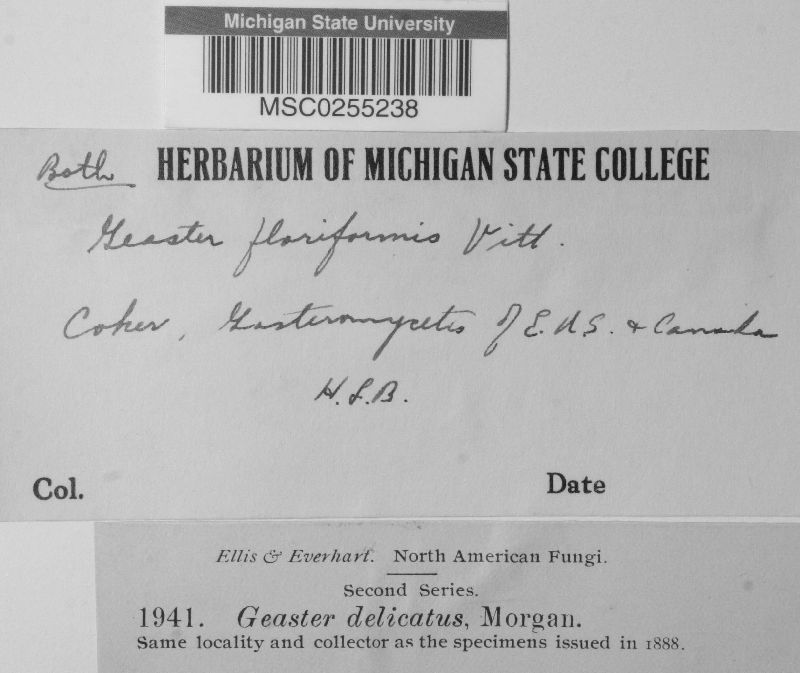 Michigan State University
MSC0255238
Both HERBARIUM OF MICHIGAN STATE COLLEGE
Geaster floriformis Vitt.
Coker, Gasteromycetes of E. U.S. & Canada
H.S.B.
Col. Date
Ellis & Everhart. North American Fungi.
Second Series.
1941. Geaster delicatus, Morgan.
Same locality and collector as the specimens issued in 1888.